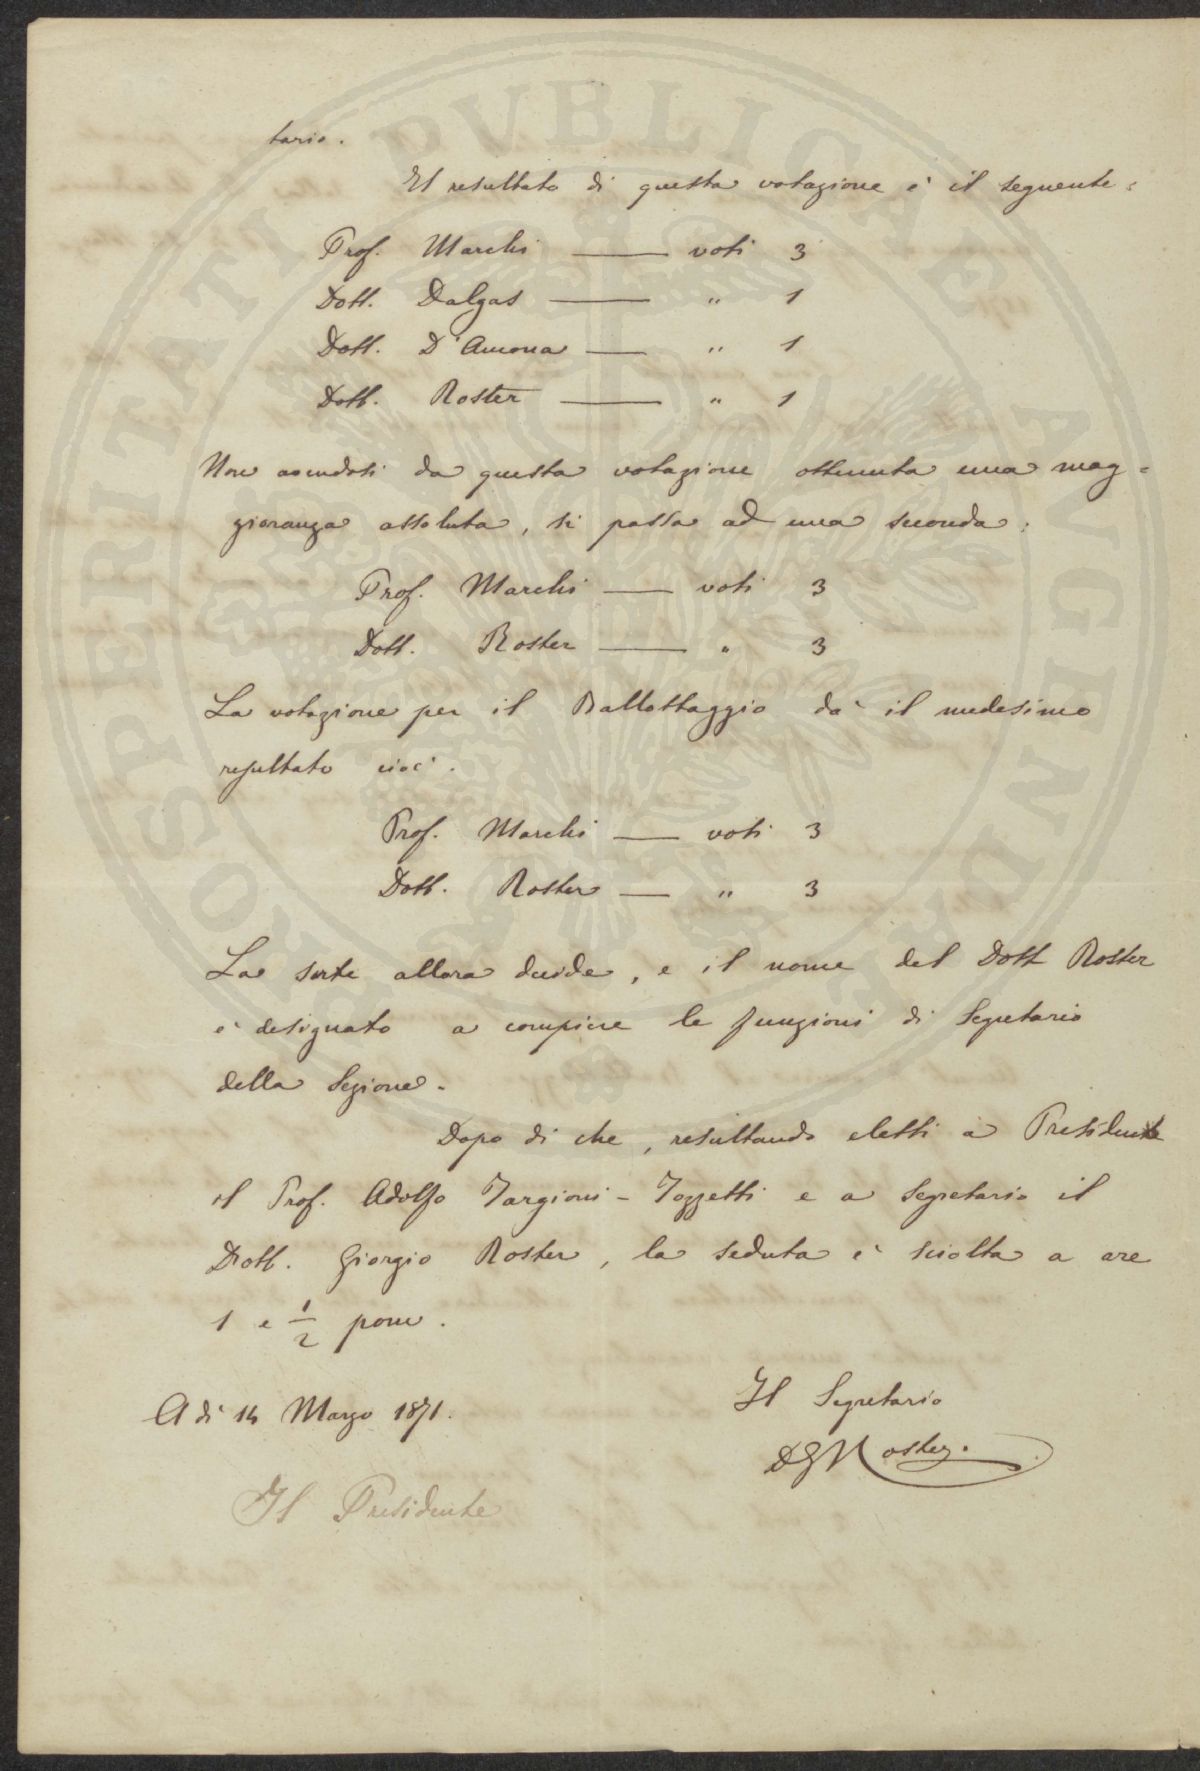 tario.
Il resultato di questa votazione è il seguente:
Prof. Marchi — voti 3
Dott. Dalgas — " 1
Dott. D'Ancona — " 1
Dott. Roster — " 1
Non avendosi da questa votazione ottenuta una mag=
gioranza assoluta, si passa ad una seconda:
Prof. Marchi — voti 3
Dott. Roster — " 3
La votazione per il Ballottaggio dà il medesimo
resultato cioè.
Prof. Marchi — voti 3
Dott. Roster — " 3
La sorte allora decide, e il nome del Dott Roster
è designato a compiere le funzioni di Segretario
della Sezione.
Dopo di che, resultando eletti a Presidente
il Prof. Adolfo Targioni-Tozzetti e a Segretario il
Dott. Giorgio Roster, la seduta è sciolta a ore
1 e 1/2 pom.
A dì 14 Marzo 1871.
Il Segretario
D G Roster.
Il Presidente
PROSPERITATI PVBLICAE AVGENDAE